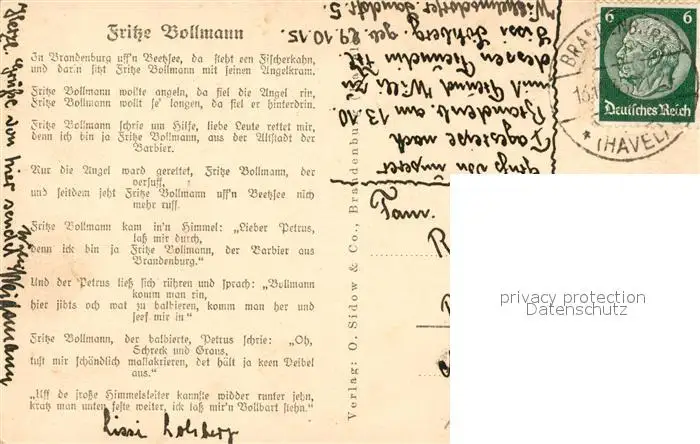 Fritze Bollmann
In Brandenburg uff'n Beetzsee, da steht een Fischerkahn,
und darin sitzt Fritze Bollmann mit seinen Angelkram.
Fritze Bollmann wollte angeln, da fiel die Angel rin,
Fritze Bollmann wollt se' langen, da fiel er hinterdrin.
Fritze Bollmann schrie um Hilfe, liebe Leute rettet mir,
denn ich bin ja Fritze Bollmann, aus der Altstadt der
Barbier.
Nur die Angel ward gerettet, Fritze Bollmann, der
versuff,
und seitdem jeht Fritze Bollmann uff'n Beetzsee nich
mehr ruff.
Fritze Bollmann kam in'n Himmel: „Lieber Petrus,
laß mir durch,
denn ick bin ja Fritze Bollmann, der Barbier aus
Brandenburg."
Und der Petrus ließ sich rühren und sprach: „Bollmann
komm man rin,
hier jibts och wat zu balbieren, komm man her und
seef mir in"
Fritze Bollmann, der balbierte, Petrus schrie: „Oh,
Schreck und Graus,
tust mir schändlich massakrieren, det hält ja keen Deibel
aus."
„Uff de jroße Himmelsleiter kannste widder runter jehn,
kratz man unten feste weiter, ick laß mir'n Vollbart stehn."
Lissi Lohberg
Herzl. Grüße von hier sendet
Verlag: O. Sidow & Co., Brandenburg
Gruß von unserer
Tagesreise nach
Brandenb. am 13.10.
mit Freund Willi
dessen Freundin
Lissi Lohberg, geb. 29.10.15.
Wilhelmsdorfer Landstr. 5.
6 6
Deutsches Reich
BRANDENBURG
* (HAVEL)
privacy protection
Datenschutz